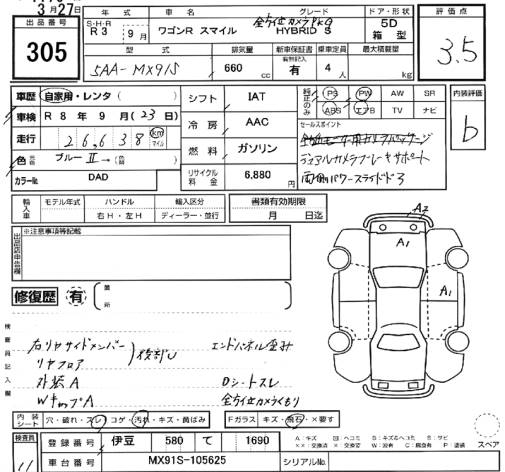 3月27日
出品番号
305
年式 車名 グレード ドア・形状
S・H・R
R 3 9月 ワゴンR スマイル 全方位カメラPKG HYBRID S 5D 箱型
型式 排気量 新車保証書 乗車定員 最大積載量
5AA-MX91S 660 cc 有 4 人 kg
評価点
3.5
車歴 自家用・レンタ( )
車検 R 8 年 9 月(23日)
走行 26,638 km マイル
色 ブルーII→( )
カラーNo DAD
シフト IAT
冷房 AAC
燃料 ガソリン
リサイクル料金 6,880 円
純正のみ PS PW AW SR
エアB TV ナビ
セールスポイント
デュアルカメラブレーキサポート
両側パワースライドドア
内装評価
b
輸入車 モデル年式 ハンドル 輸入区分
右H・左H ディーラー・並行
書類有効期限
月 日迄
出品店申告欄
※注意事項等記載
修復歴 有 箇所
検査員記入欄
右リヤサイドメンバー
リヤフロア
外装A
WキャップA
エンドパネル歪み
Dシートスレ
全方位カメラくもり
A2
A1
A1
内装シート 穴・破れ・スレ・コゲ・汚れ・キズ・黄ばみ
Fガラス キズ・飛石・×要す
検査員
登録番号 伊豆 580 て 1690
車台番号 MX91S-105625
シリアルNo.
スペア